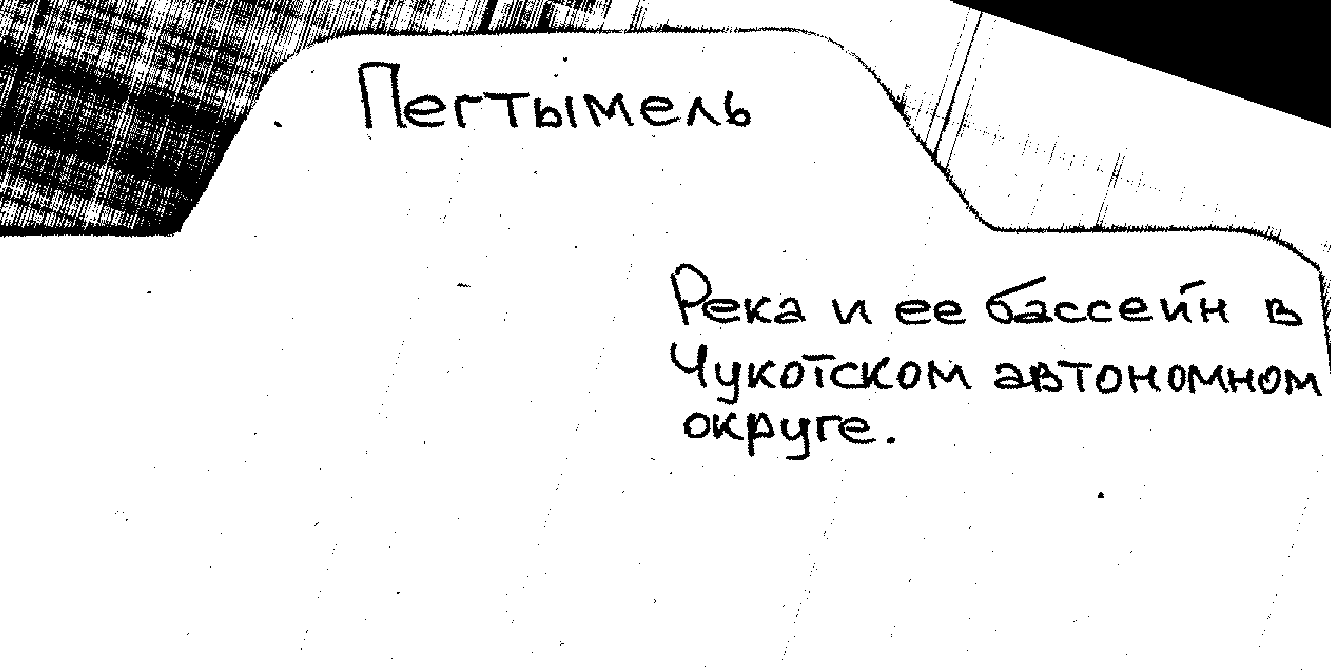 Пегтымель
Река и ее бассейн в
Чукотском автономном
округе.